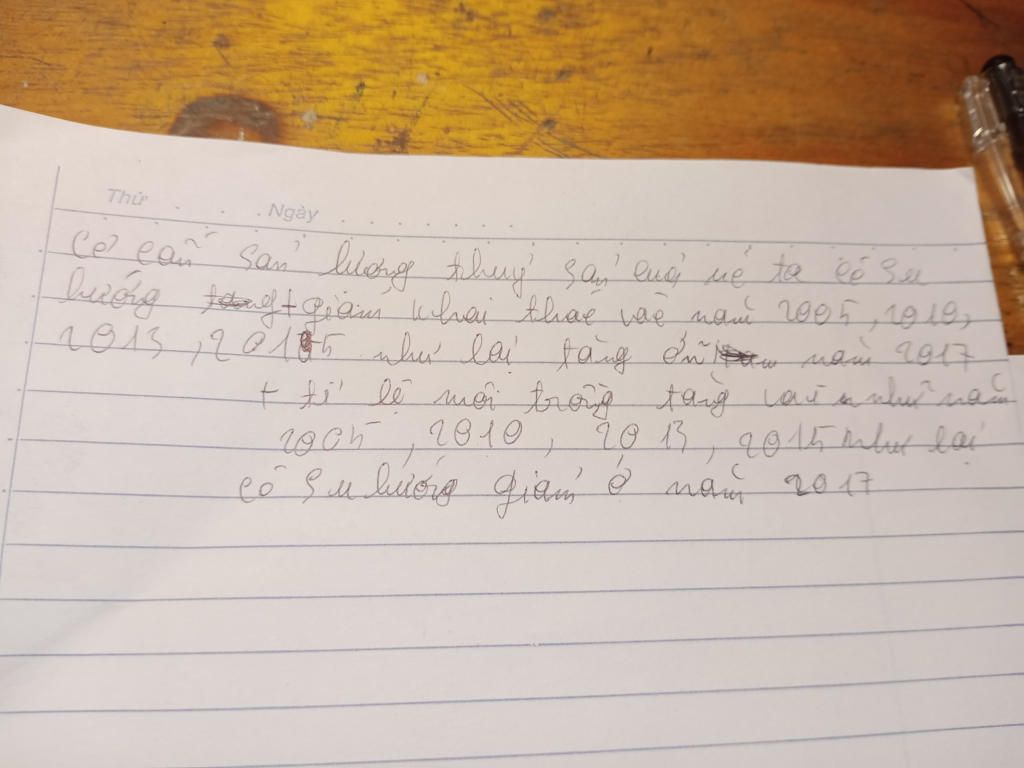 Thứ Ngày
Cơ cấu sản lượng thuỷ sản cuả nc ta có su
hướng + giảm khai thác vào năm 2005, 2010,
2013, 2015 như lại tăng ở năm 2017
+ tỉ lệ nuôi trồng tăng vào như năm
2005, 2010, 2013, 2015 như lại
có su hướng giảm ở năm 2017